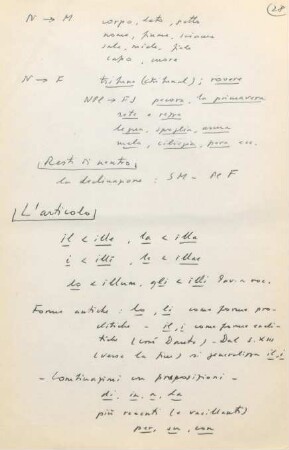 28
N → M corpo, lato, petto
nome, fiume, sciame
sale, miele, fiele
capo, mare
N → F testuma (testimonl); rovere
NPl → FS pecora, la primavera
rete e seppa
legna, spoglia, arma
mela, ciliegia, pera ecc.
Resti di neutro
la declinazione : SM - Pl F
L'articolo
il < ille, la < illa
i < illi, le < illae
lo < illum, gli < illi dav. a voc.
Forme antiche : lo, li come forme pro-
clitiche - il, i come forme encli-
tiche (così Dante). Dal s. XIII
(verso la fine) si generalizza il, i
- Combinazioni con preposizioni -
di, in, a, da
più recenti (e vacillanti)
per, su, con